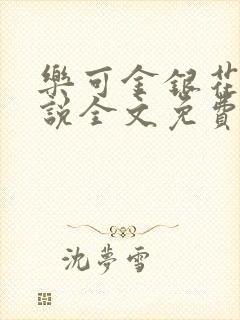 樂可金銀花
說全文免費
沈夢雪